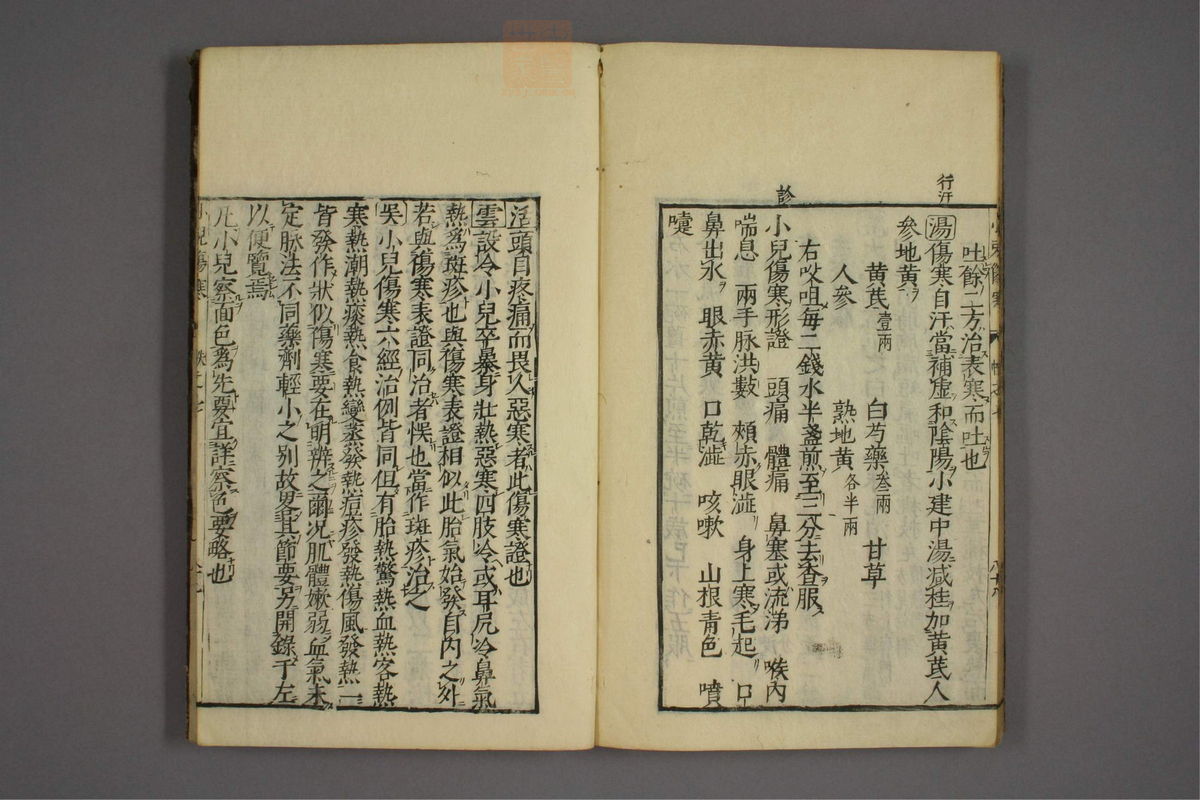 吐餘二方治表寒而吐也
行汗
湯傷寒自汗當補虛和陰陽小建中湯減桂加黃芪人
參地黃
黃芪壹兩 白芍藥叁兩 甘草
人參 熟地黃各半兩
右㕮咀每二錢水半盞煎至三分去查服
診
小兒傷寒形證 頭痛 體痛 鼻塞或流涕 喉內
喘息 兩手脉洪數 頰赤眼澁 身上寒毛起 口
鼻出水 眼赤黃 口乾澁 咳嗽 山根青色 噴
嚏
活頭目疼痛而畏人惡寒者此傷寒證也
雲設令小兒卒暴身壯熱惡寒四肢冷或耳尻冷鼻氣
熱爲斑疹也與傷寒表證相似此胎氣始發自內之外
若與傷寒表證同治者悞也當作斑疹治之
吳小兒傷寒六經治例皆同但有胎熱驚熱血熱客熱
寒熱潮熱痰熱食熱變蒸發熱痘疹發熱傷風發熱一
皆發作狀似傷寒要在明辨之爾况肌體嫩弱血氣未
定脉法不同藥劑輕小之別故畧其節要另開錄于左
以便覽焉
凡小兒察面色爲先要宜詳察色要略也
小兒傷寒